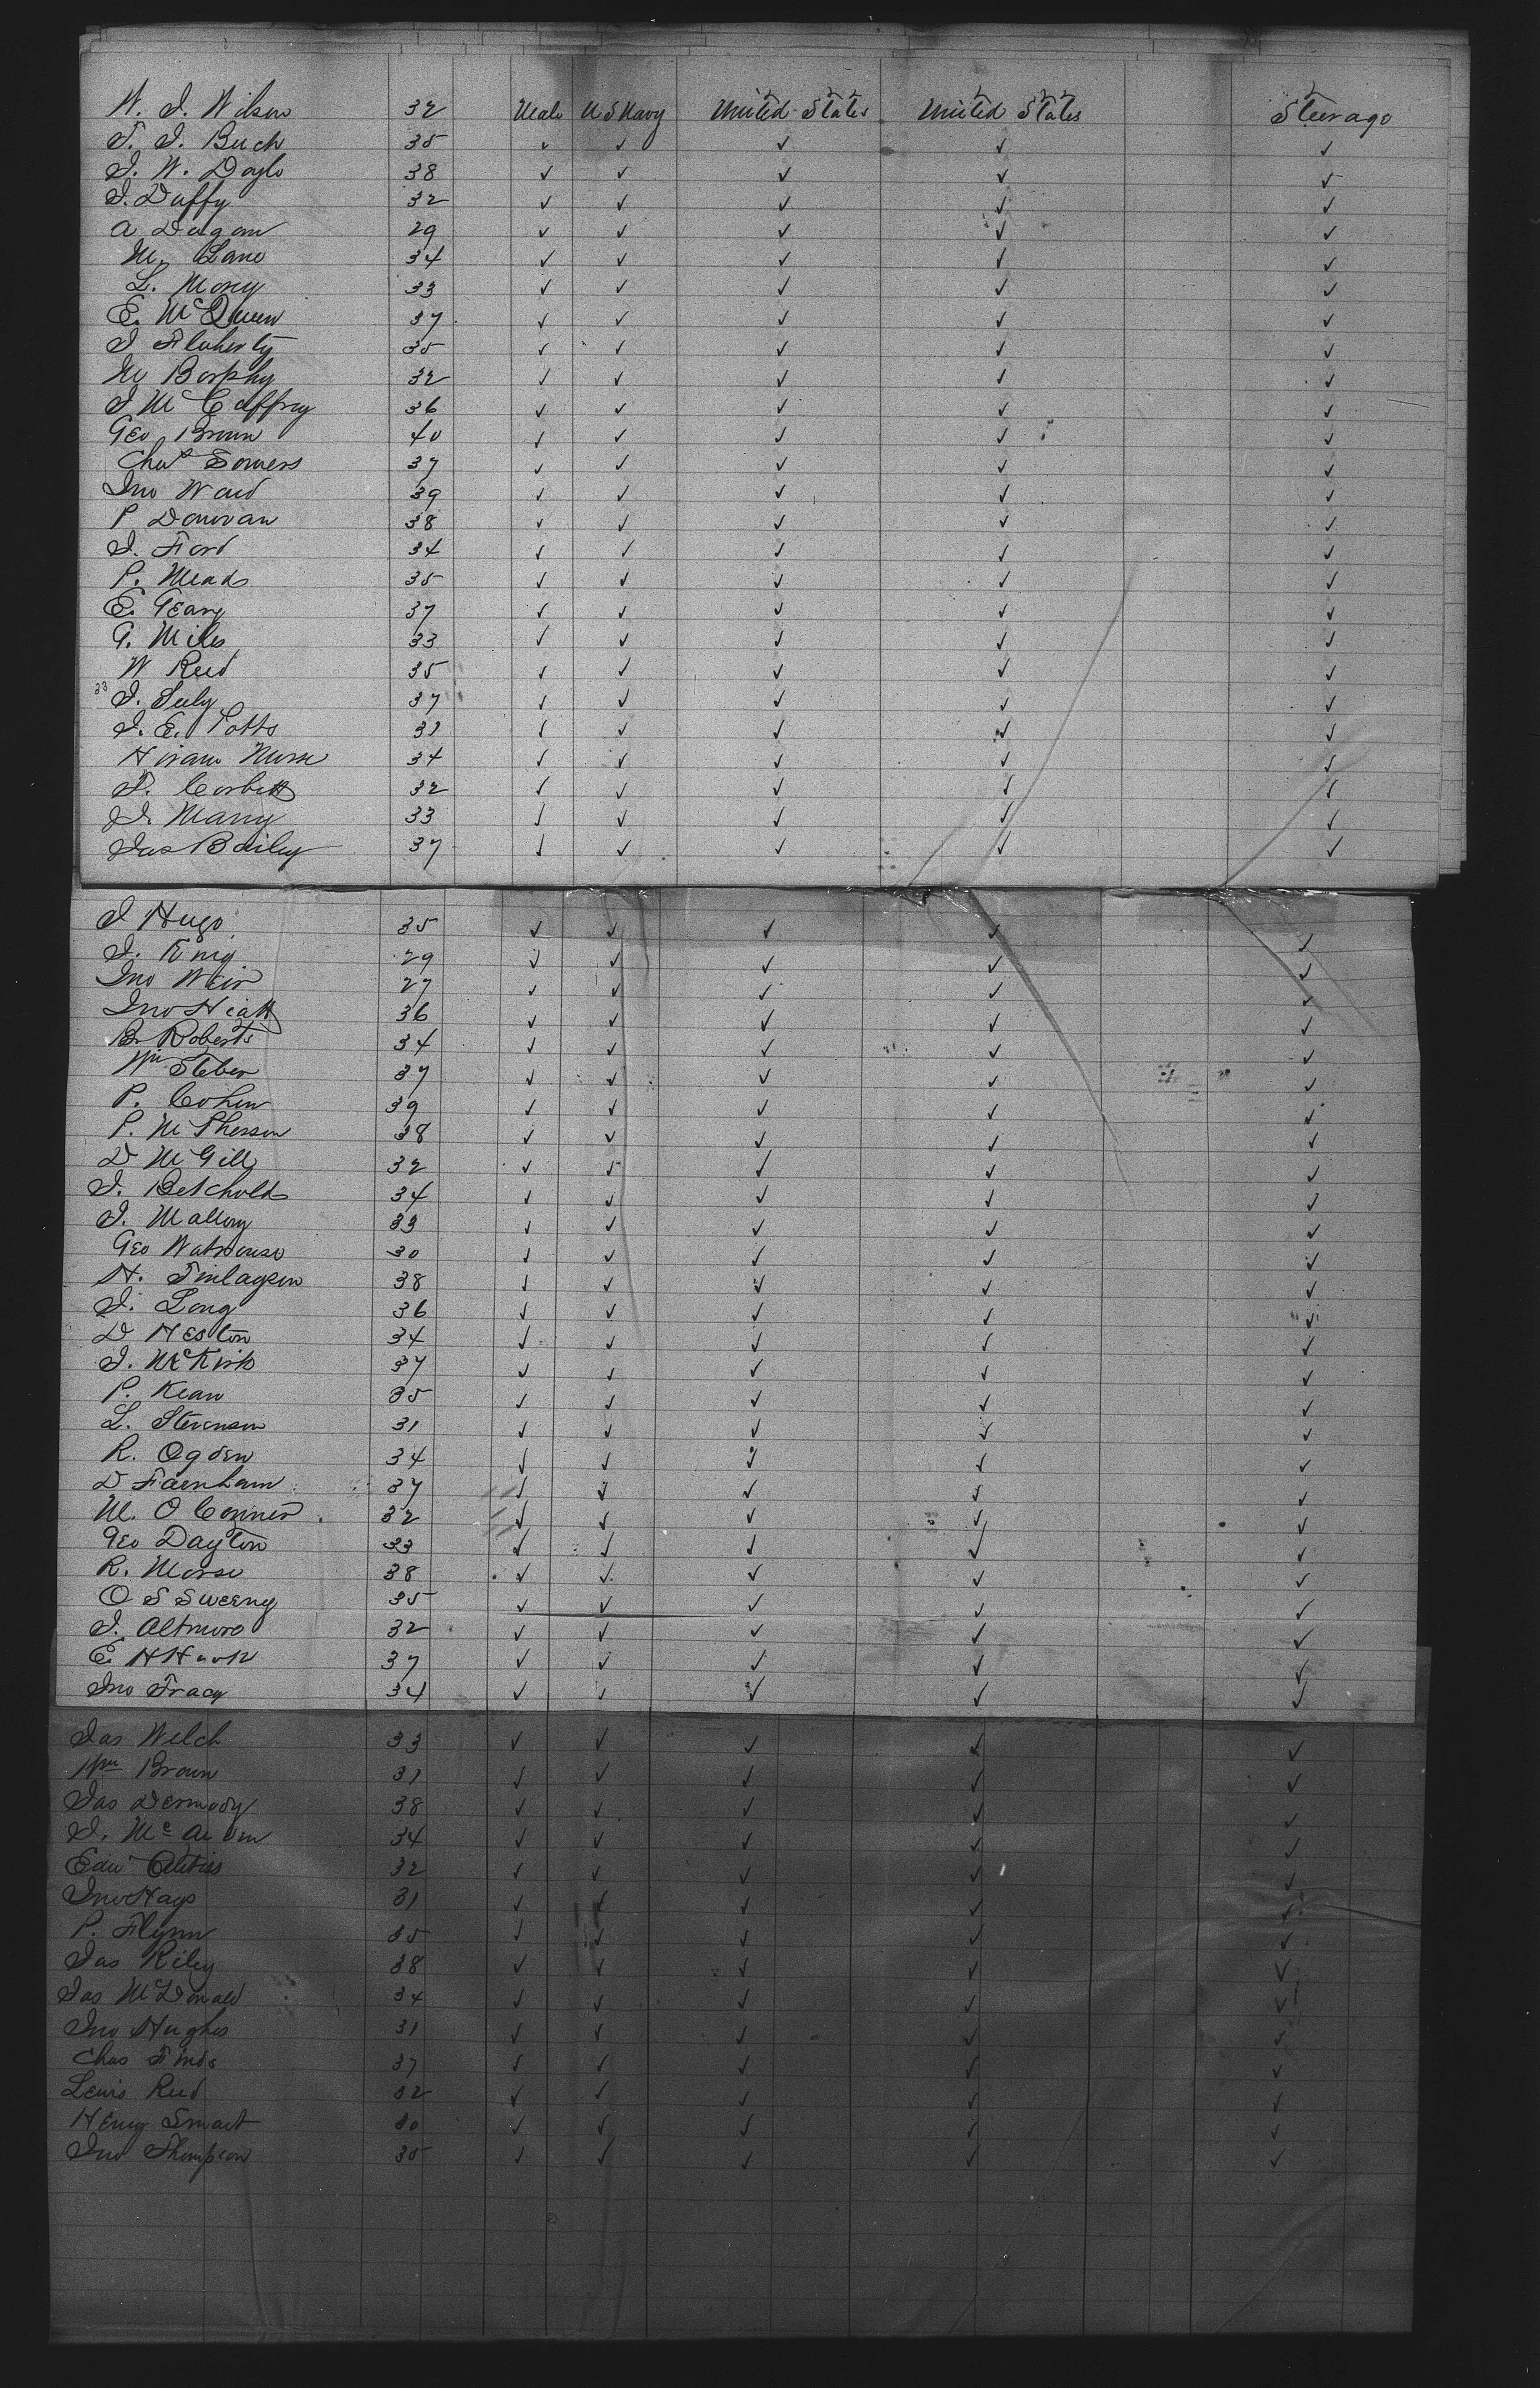 W. J. Wilson 32 Male U S Navy United States United States Steerage
T. J. Buch 35 ✓ ✓ ✓ ✓ ✓
J. W. Doyle 38 ✓ ✓ ✓ ✓ ✓
J. Duffy 32 ✓ ✓ ✓ ✓ ✓
A Dugan 29 ✓ ✓ ✓ ✓ ✓
M. Lane 34 ✓ ✓ ✓ ✓ ✓
L. Morey 33 ✓ ✓ ✓ ✓ ✓
E. McQueen 37 ✓ ✓ ✓ ✓ ✓
J Flaherty 35 ✓ ✓ ✓ ✓ ✓
M Borphy 32 ✓ ✓ ✓ ✓ ✓
J McCaffrey 36 ✓ ✓ ✓ ✓ ✓
Geo Brown 40 ✓ ✓ ✓ ✓ ✓
Chas Somers 37 ✓ ✓ ✓ ✓ ✓
Jno Ward 39 ✓ ✓ ✓ ✓ ✓
P Donovan 38 ✓ ✓ ✓ ✓ ✓
J. Ford 34 ✓ ✓ ✓ ✓ ✓
P. Meade 35 ✓ ✓ ✓ ✓ ✓
E. Geary 37 ✓ ✓ ✓ ✓ ✓
G. Miles 33 ✓ ✓ ✓ ✓ ✓
W Reed 35 ✓ ✓ ✓ ✓ ✓
33 J. Suly 37 ✓ ✓ ✓ ✓ ✓
J. E. Potts 31 ✓ ✓ ✓ ✓ ✓
Hiram Nurse 34 ✓ ✓ ✓ ✓ ✓
T. Corbett 32 ✓ ✓ ✓ ✓ ✓
J. Marry 33 ✓ ✓ ✓ ✓ ✓
Jas Bailey 37 ✓ ✓ ✓ ✓ ✓
J Hugo 35 ✓ ✓ ✓ ✓ ✓
J. King 29 ✓ ✓ ✓ ✓ ✓
Jno Weir 27 ✓ ✓ ✓ ✓ ✓
Jno Hiatt 36 ✓ ✓ ✓ ✓ ✓
B. Roberts 34 ✓ ✓ ✓ ✓ ✓
Wm Steber 37 ✓ ✓ ✓ ✓ ✓
P. Cohen 39 ✓ ✓ ✓ ✓ ✓
P. McPherson 38 ✓ ✓ ✓ ✓ ✓
D McGill 32 ✓ ✓ ✓ ✓ ✓
J. Betchold 34 ✓ ✓ ✓ ✓ ✓
J. Mallory 33 ✓ ✓ ✓ ✓ ✓
Geo Watrouse 30 ✓ ✓ ✓ ✓ ✓
H. Finlayson 38 ✓ ✓ ✓ ✓ ✓
J. Long 36 ✓ ✓ ✓ ✓ ✓
D Heston 34 ✓ ✓ ✓ ✓ ✓
J. McKirk 37 ✓ ✓ ✓ ✓ ✓
P. Kean 35 ✓ ✓ ✓ ✓ ✓
L. Stevenson 31 ✓ ✓ ✓ ✓ ✓
R. Ogden 34 ✓ ✓ ✓ ✓ ✓
D Farnham 37 ✓ ✓ ✓ ✓ ✓
M. O Conner 32 ✓ ✓ ✓ ✓ ✓
Geo Dayton 33 ✓ ✓ ✓ ✓ ✓
R. Morse 38 ✓ ✓ ✓ ✓ ✓
O S Sweeny 35 ✓ ✓ ✓ ✓ ✓
J. Altmore 32 ✓ ✓ ✓ ✓ ✓
E. H Hook 37 ✓ ✓ ✓ ✓ ✓
Jno Tracy 34 ✓ ✓ ✓ ✓ ✓
Jas Welch 33 ✓ ✓ ✓ ✓ ✓
Wm Brown 31 ✓ ✓ ✓ ✓ ✓
Jas Dermody 38 ✓ ✓ ✓ ✓ ✓
J. 34 ✓ ✓ ✓ ✓ ✓
Edw 32 ✓ ✓ ✓ ✓ ✓
Jno Hays 31 ✓ ✓ ✓ ✓ ✓
P. Flynn 35 ✓ ✓ ✓ ✓ ✓
Jas Riley 38 ✓ ✓ ✓ ✓ ✓
Jas McDonald 34 ✓ ✓ ✓ ✓ ✓
Jno Hughes 31 ✓ ✓ ✓ ✓ ✓
Chas Finds 37 ✓ ✓ ✓ ✓ ✓
Lewis Reed 32 ✓ ✓ ✓ ✓ ✓
Henry Smart 30 ✓ ✓ ✓ ✓ ✓
Jno Thompson 35 ✓ ✓ ✓ ✓ ✓